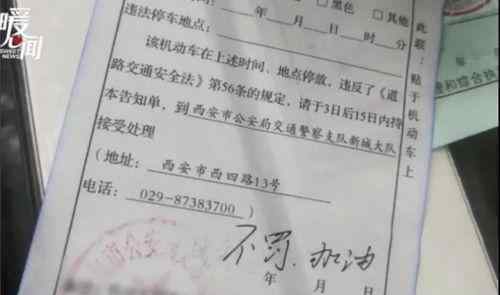 暖心闻
SWEET NEWS
____年__月__日
□黑色 □其他
违法停车地点：
____年__月__日__时__分
该机动车在上述时间、地点停放，违反了《道
路交通安全法》第56条的规定，请于3日后15日内持
本告知单，到西安市公安局交通警察支队新城大队
接受处理
（地址：西安市西四路13号
电话：029-87383700）
不罚.加油
年 月 日
此联：贴于机动车上